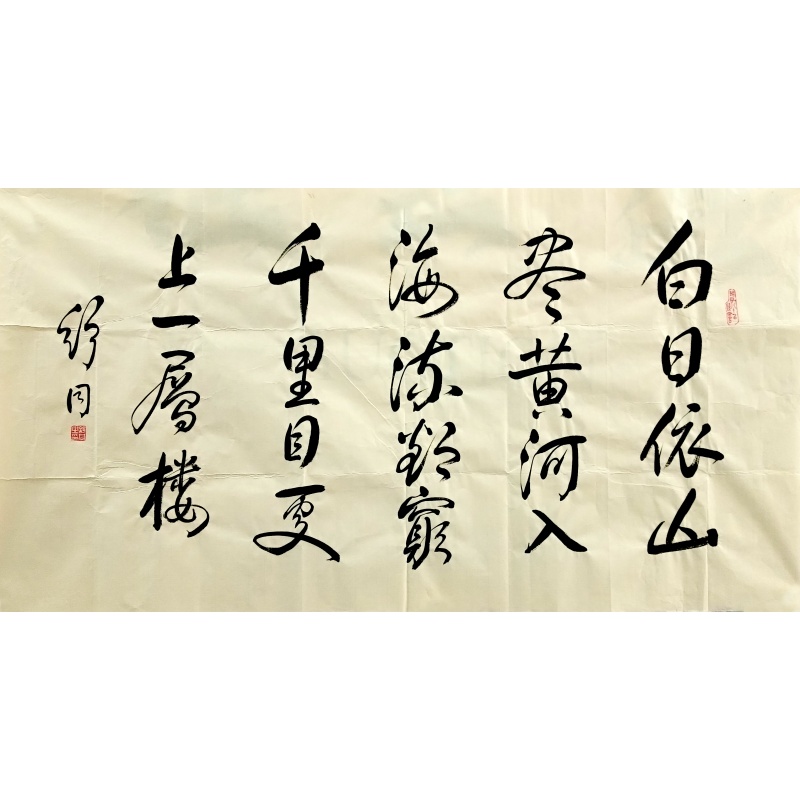 白日依山
尽黄河入
海流欲穷
千里目更
上一层楼
舒同